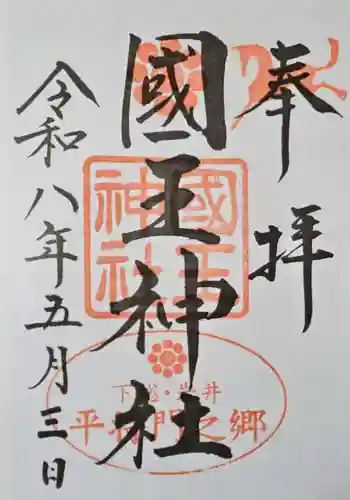 奉拝
國王神社
令和八年五月三日
國王神社
下総・岩井
平将門之郷